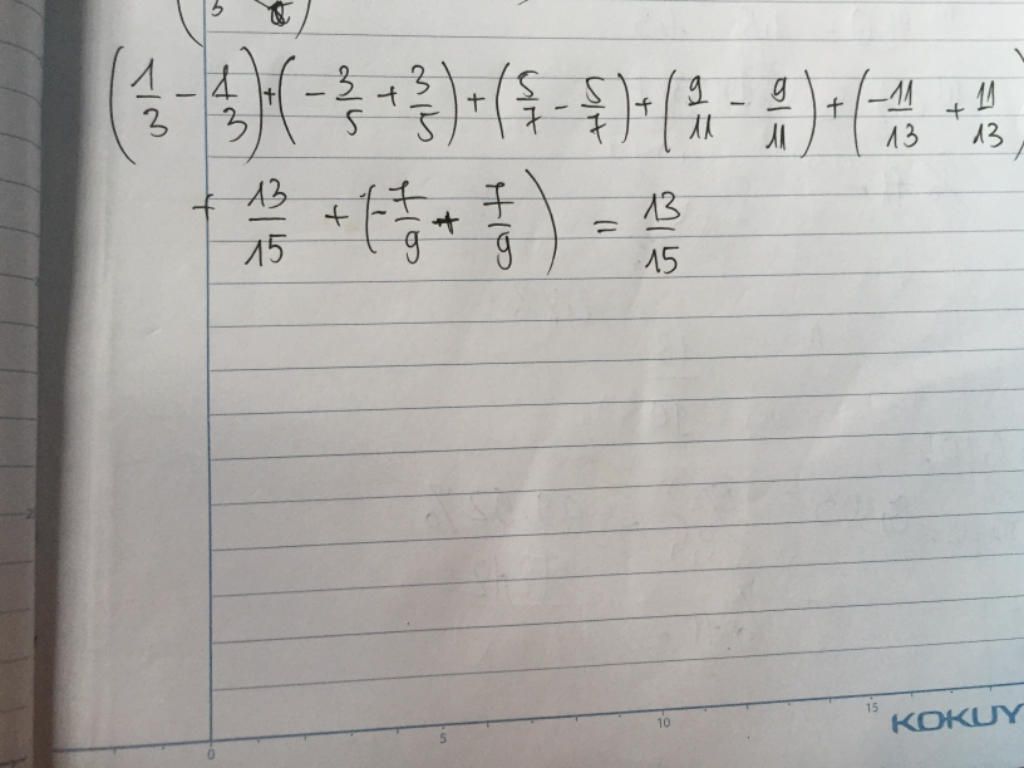 (1/3 - 1/3) + (-3/5 + 3/5) + (5/7 - 5/7) + (9/11 - 9/11) + (-11/13 + 11/13)
+ 13/15 + (-7/9 + 7/9) = 13/15
0 5 10 15
KOKUY